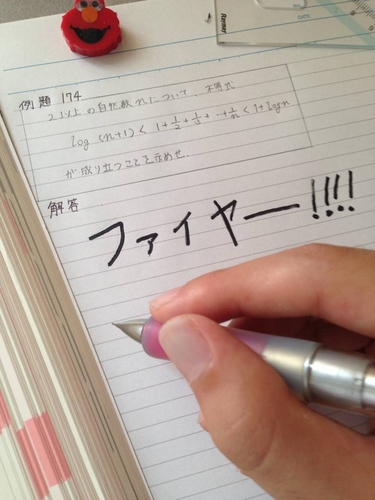 例題 174
2以上の自然数nについて、不等式
log (n+1) < 1+1/2+1/3+…+1/n < 1+logn
が成り立つことを示せ.
解答
ファイヤー!!!!